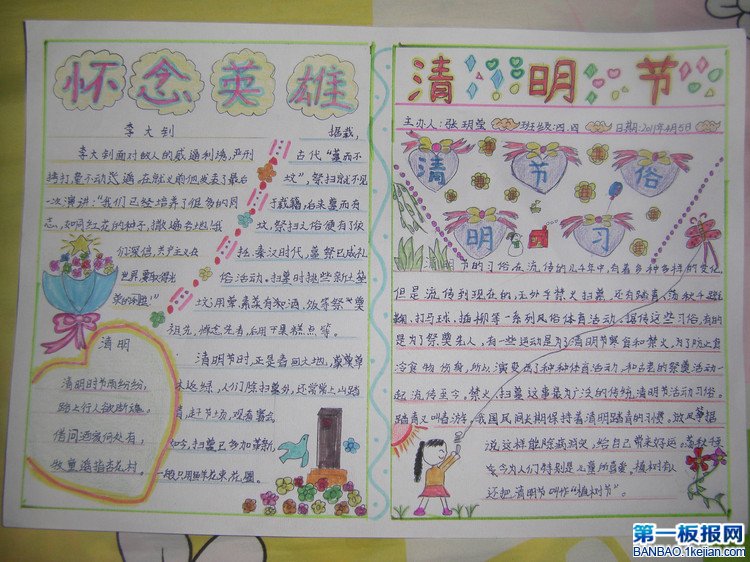 怀念英雄
李大钊
李大钊面对敌人的威逼利诱,严刑
拷打毫不动摇。在就义前他发表了最后
一次演讲:“我们已经培养了很多的同
志,如同红花的种子,撒遍各地!我
们深信,共产主义在
世界
清明
清明时节雨纷纷,
路上行人欲断魂。
借问酒家何处有,
牧童遥指杏花村。
据载,
古代“墓而不
坟”,祭扫就不见
于载籍,后来墓而有
坟,祭扫之俗便有了依
托。秦汉时代,墓祭已成礼
俗活动。扫墓时挑些新土
坟,用荤素菜肴和酒、饭等祭“奠
祖先,
清明节时,正是春回大地,
人们除扫墓外,还常常上山踏
青,赶节场,观看赛会
如今,扫墓已多加革新,
一般只用鲜花束、花圈。
清明节
主办人:张玥莹 班级:四.四 日期:2019年4月5日
清 节 俗
明 习
清明节的习俗在流传的几千年中,有着多种多样的变化,
但是流传到现在的,无外乎禁火扫墓,还有踏青、荡秋千、蹴
鞠、打马球、插柳等一系列风俗体育活动。据传这些习俗,有的
是为了祭奠先人,有一些运动是为了清明节要食和禁火,为了防止寒
冷食物伤身,所以演变成了种种体育活动,和古老的祭奠活动一
起流传至今。禁火、扫墓这事最为广泛的传统清明节活动习俗。
踏青又叫春游,我国民间长期保持着清明踏青的习惯。放风筝据
说这样能除病消灾,给自己带来好运。荡秋千
至今为人们特别是儿童所喜爱。植树有人
还把清明节叫作“植树节”。
第一板报网
BANBAO.1kejian.com